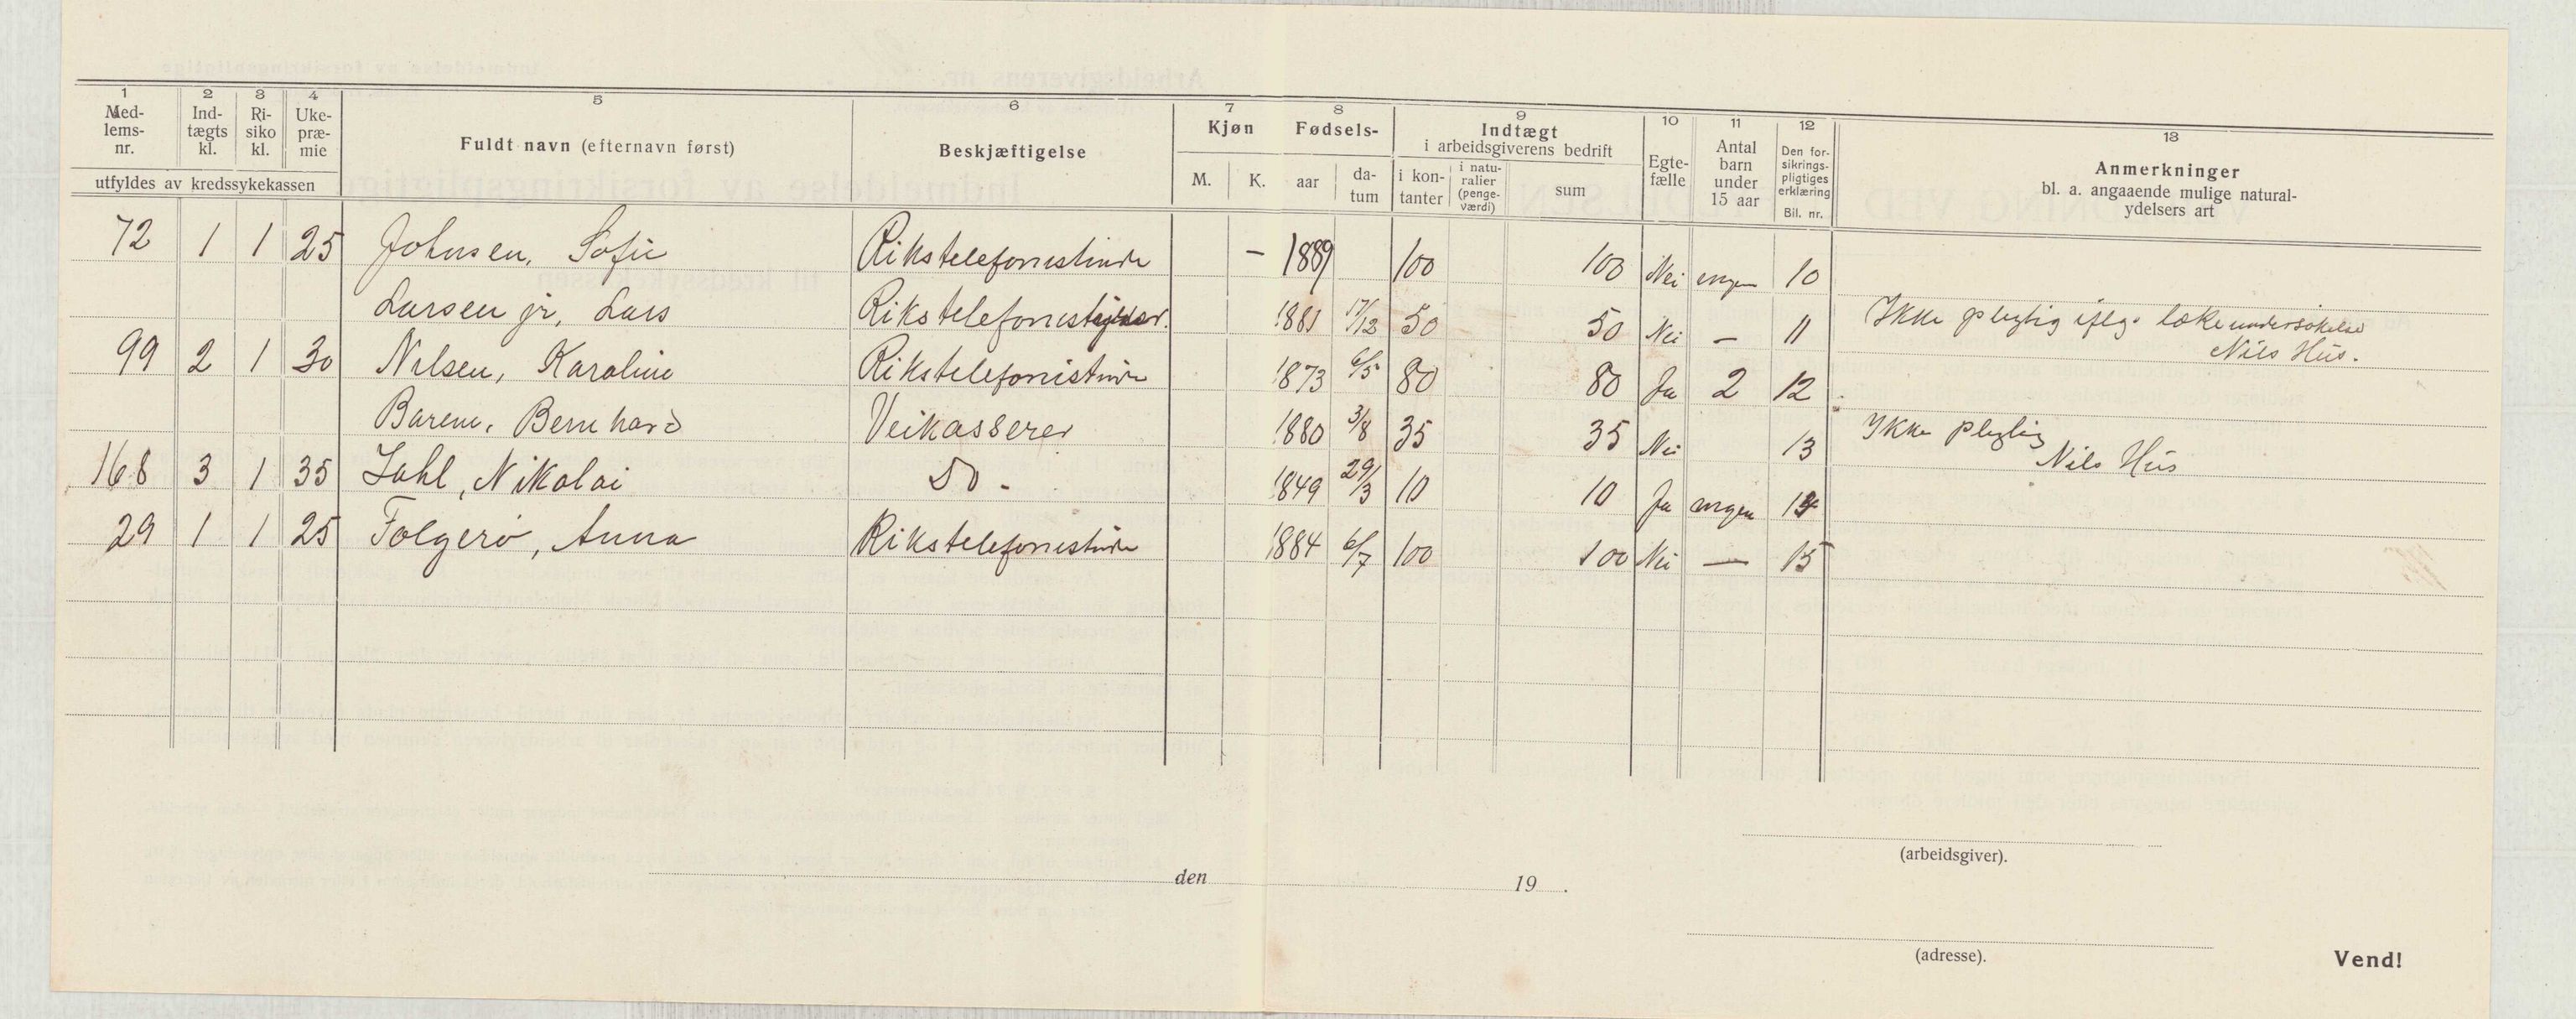 1 2 3 4 5 6 7 8 9 10 11 12 13
Med-lems-nr. Ind-tægts kl. Ri-siko kl. Uke-præ-mie Fuldt navn (efternavn først) Beskjæftigelse Kjøn Fødsels- Indtægt i arbeidsgiverens bedrift Egte-fælle Antal barn under 15 aar Den for-sikrings-pligtiges erklæring Bil. nr. Anmerkninger bl. a. angaaende mulige natural-ydelsers art
utfyldes av kredssykekassen M. K. aar da-tum i kon-tanter i natu-ralier (penge-værdi) sum
72 1 1 25 Johnsen, Sofie Rikstelefonistinde — 1889 100 100 Nei ingen 10
Larsen jr, Lars Rikstelefonbestyrer. 1881 17/12 50 50 Nei — 11 Ikke pligtig iflg. lækeundersøkelse
Nils Hus.
99 2 1 30 Nilsen, Karoline Rikstelefonistinde 1873 6/5 80 80 Ja 2 12
Barene, Bernhard Veikasserer 1880 3/8 35 35 Nei 13 Ikke pligtig
Nils Hus
168 3 1 35 Jahl, Nikolai Do - 1849 29/3 10 10 Ja ingen 14
29 1 1 25 Folgerø, Anna Rikstelefonistinde 1884 6/7 100 100 Nei — 15
(arbeidsgiver).
den 19 .
(adresse).
Vend!